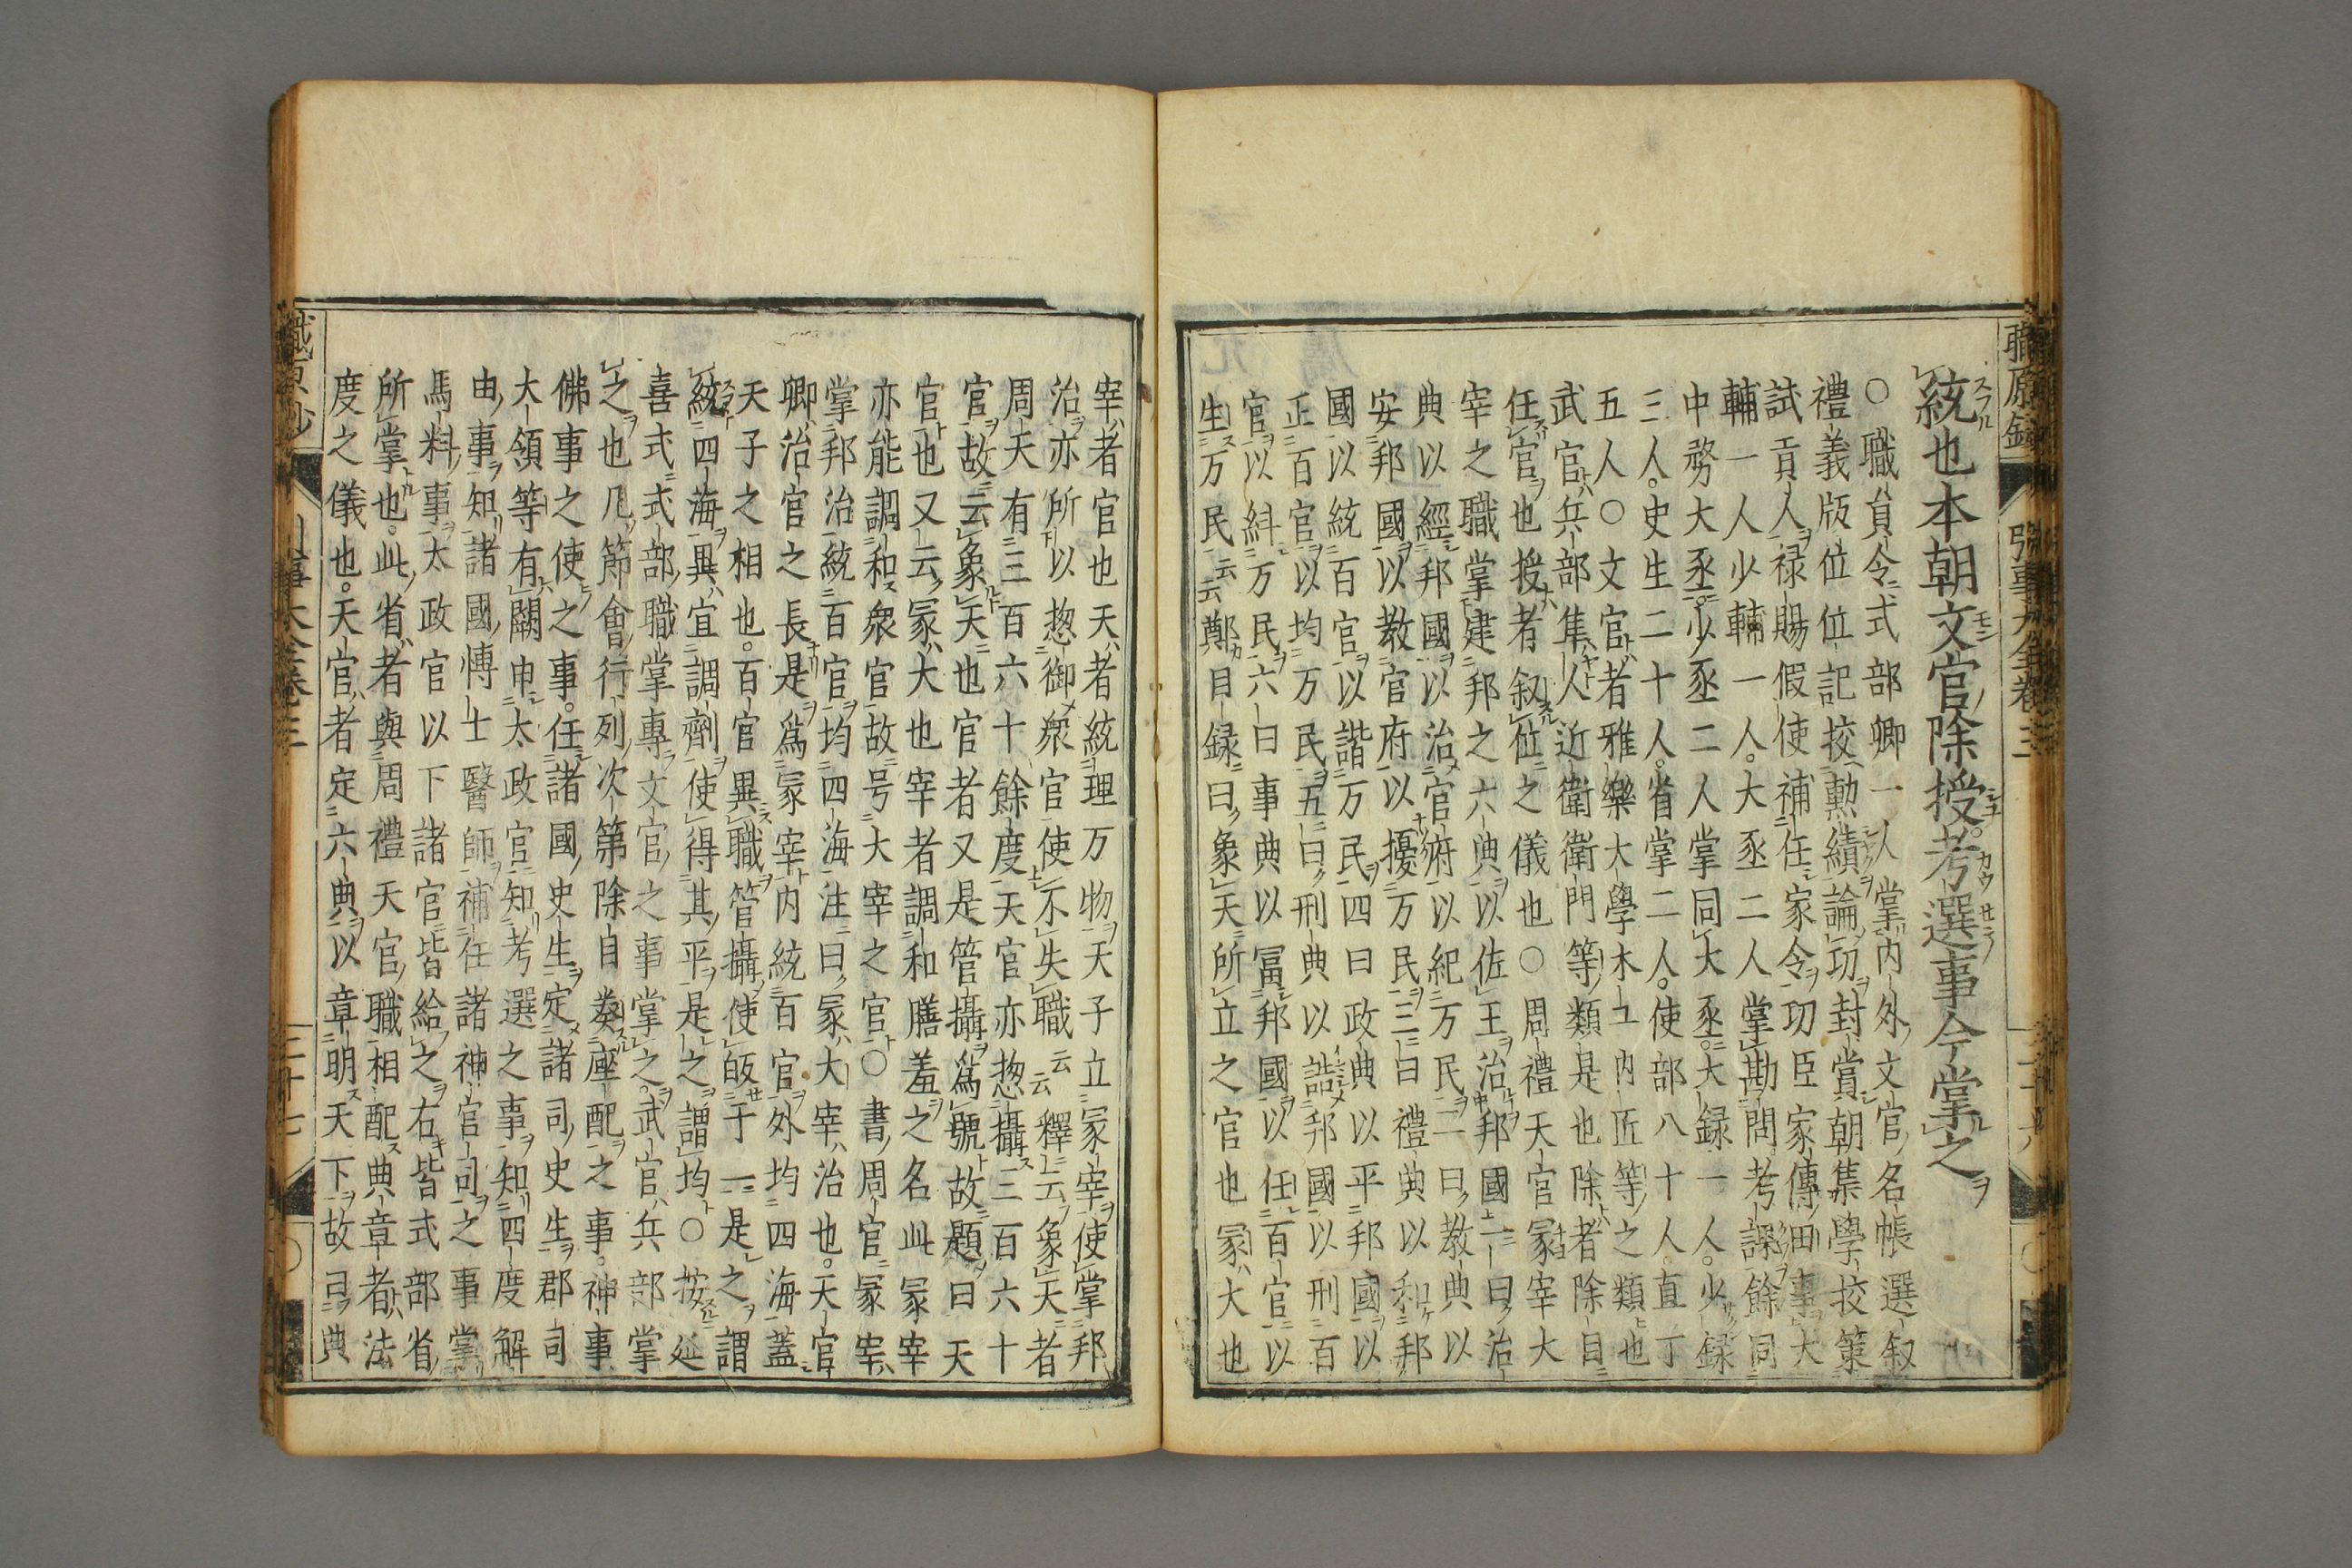 統也本朝文官除授考選事今掌之
○職員令式部卿一人掌内外文官名帳選叙
禮義版位位記校勲績論功封賞朝集學校策
試貢人禄賜假使補任家令功臣家傳田事大
輔一人少輔一人大丞二人掌勘問考課餘同
中務大丞少丞二人掌同大丞大録一人少録
三人史生二十人省掌二人使部八十人直丁
五人○文官者雅樂大學木工内匠等之類也
武官兵部隼人近衛衛門等類是也除者除目
任官也授者叙位之儀也○周禮天官冢宰大
宰之職掌建邦之六典以佐王治邦國一曰治
典以經邦國以治官府以紀万民二曰教典以
安邦國以教官府以擾万民三曰禮典以和邦
國以統百官以諧万民四曰政典以平邦國以
正百官以均万民五曰刑典以詰邦國以刑百
官以糾万民六曰事典以冨邦國以任百官以
生万民云云鄭目録曰象天所立之官也冢大也
宰者官也天者統理万物天子立冢宰使掌邦
治亦所以惣御衆官使不失職云云釋云象天者
周天有三百六十餘度天官亦惣攝三百六十
官故云象天也官者又是管攝爲號故題曰天
官也又云冢大也宰者調和膳羞之名此冢宰
亦能調和衆官故号大宰之官○書周官冢宰
掌邦治統百官均四海注曰冢大宰治也天官
卿治官之長是爲冢宰内統百官外均四海蓋
天子之相也百官異職管攝使皈于一是之謂
統四海異宜調劑使得其平是之謂均○按延
喜式式部職掌專文官之事掌之武官兵部掌
之也凡節會行列次第除目奏座配之事神事
佛事之使之事任諸國史生定諸司史生郡司
大領等有闕申太政官知考選之事知四度解
由事知諸國愽士醫師補任諸神官司之事掌
馬料事太政官以下諸官皆給之右皆式部省
所掌也此省者與周禮天官職相配典章者法
度之儀也天官者定六典以章明天下故己典